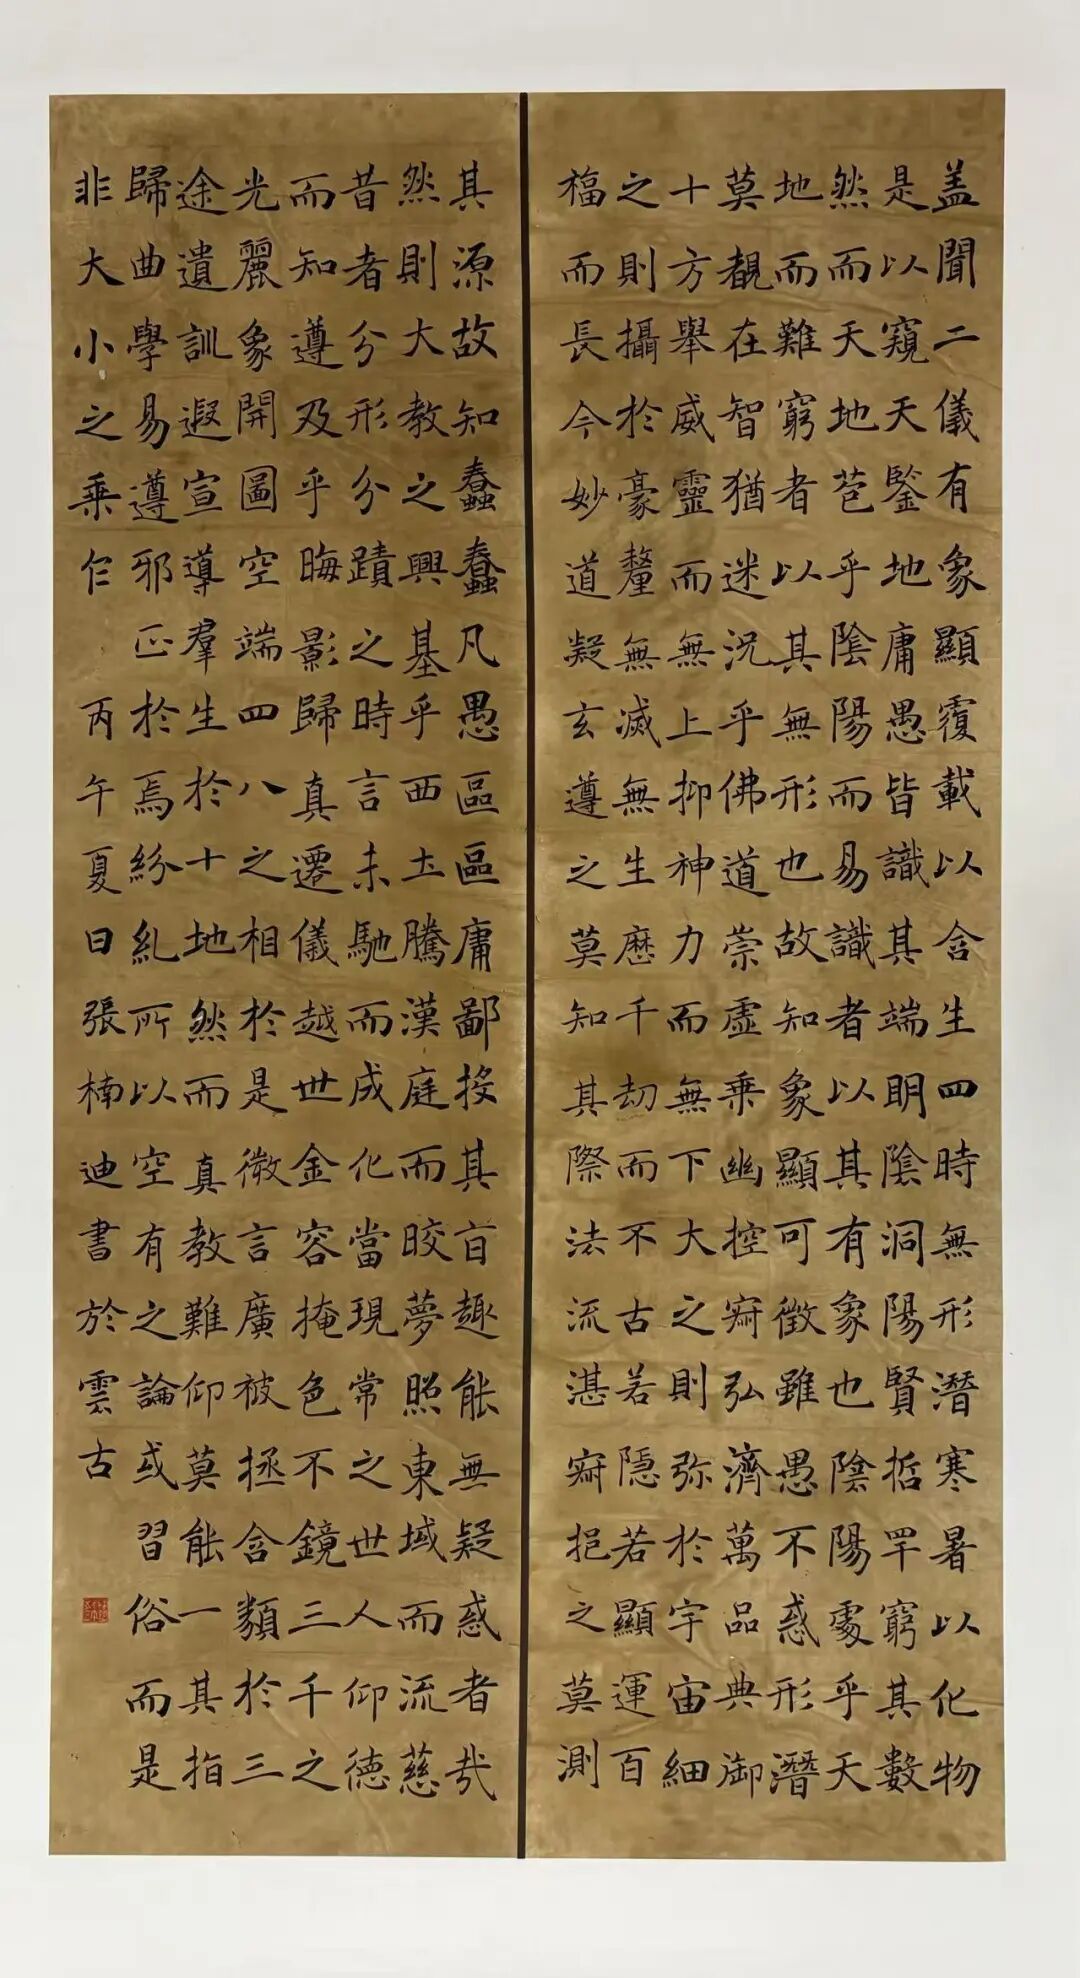 盖聞二儀有象顯覆載以含生四時無形潛寒暑以化物
是以窺天鑒地庸愚皆識其端明陰洞陽賢哲罕窮其數
然而天地苞乎陰陽而易識者以其有象也陰陽處乎天
地而難窮者以其無形也故知象顯可徵雖愚不惑形潛
莫覩在智猶迷況乎佛道崇虛乘幽控寂弘濟萬品典御
十方舉威靈而無上抑神力而無下大之則弥於宇宙細
之則攝於豪釐無滅無生歷千劫而不古若隱若顯運百
福而長今妙道凝玄遵之莫知其際法流湛寂挹之莫測
其源故知蠢蠢凡愚區區庸鄙投其旨趣能無疑惑者哉
然則大教之興基乎西土騰漢庭而晈夢照東域而流慈
昔者分形分蹟之時言未馳而成化當現常之世人仰德
而知遵及乎晦影歸真遷儀越世金容掩色不鏡三千之
光麗象開圖空端四八之相於是微言廣被拯含類於三
途遺訓遐宣導羣生於十地然而真教難仰莫能一其指
歸曲學易遵邪正於焉紛糺所以空有之論或習俗而是
非大小之乘乍 丙午夏日張楠迪書於雲古